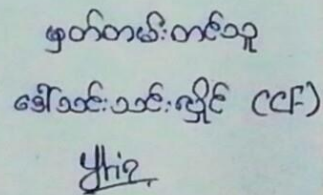 မှတ်တမ်းတင်သူ
ဒေါ်သင်းသင်းလှိုင် (CCF)